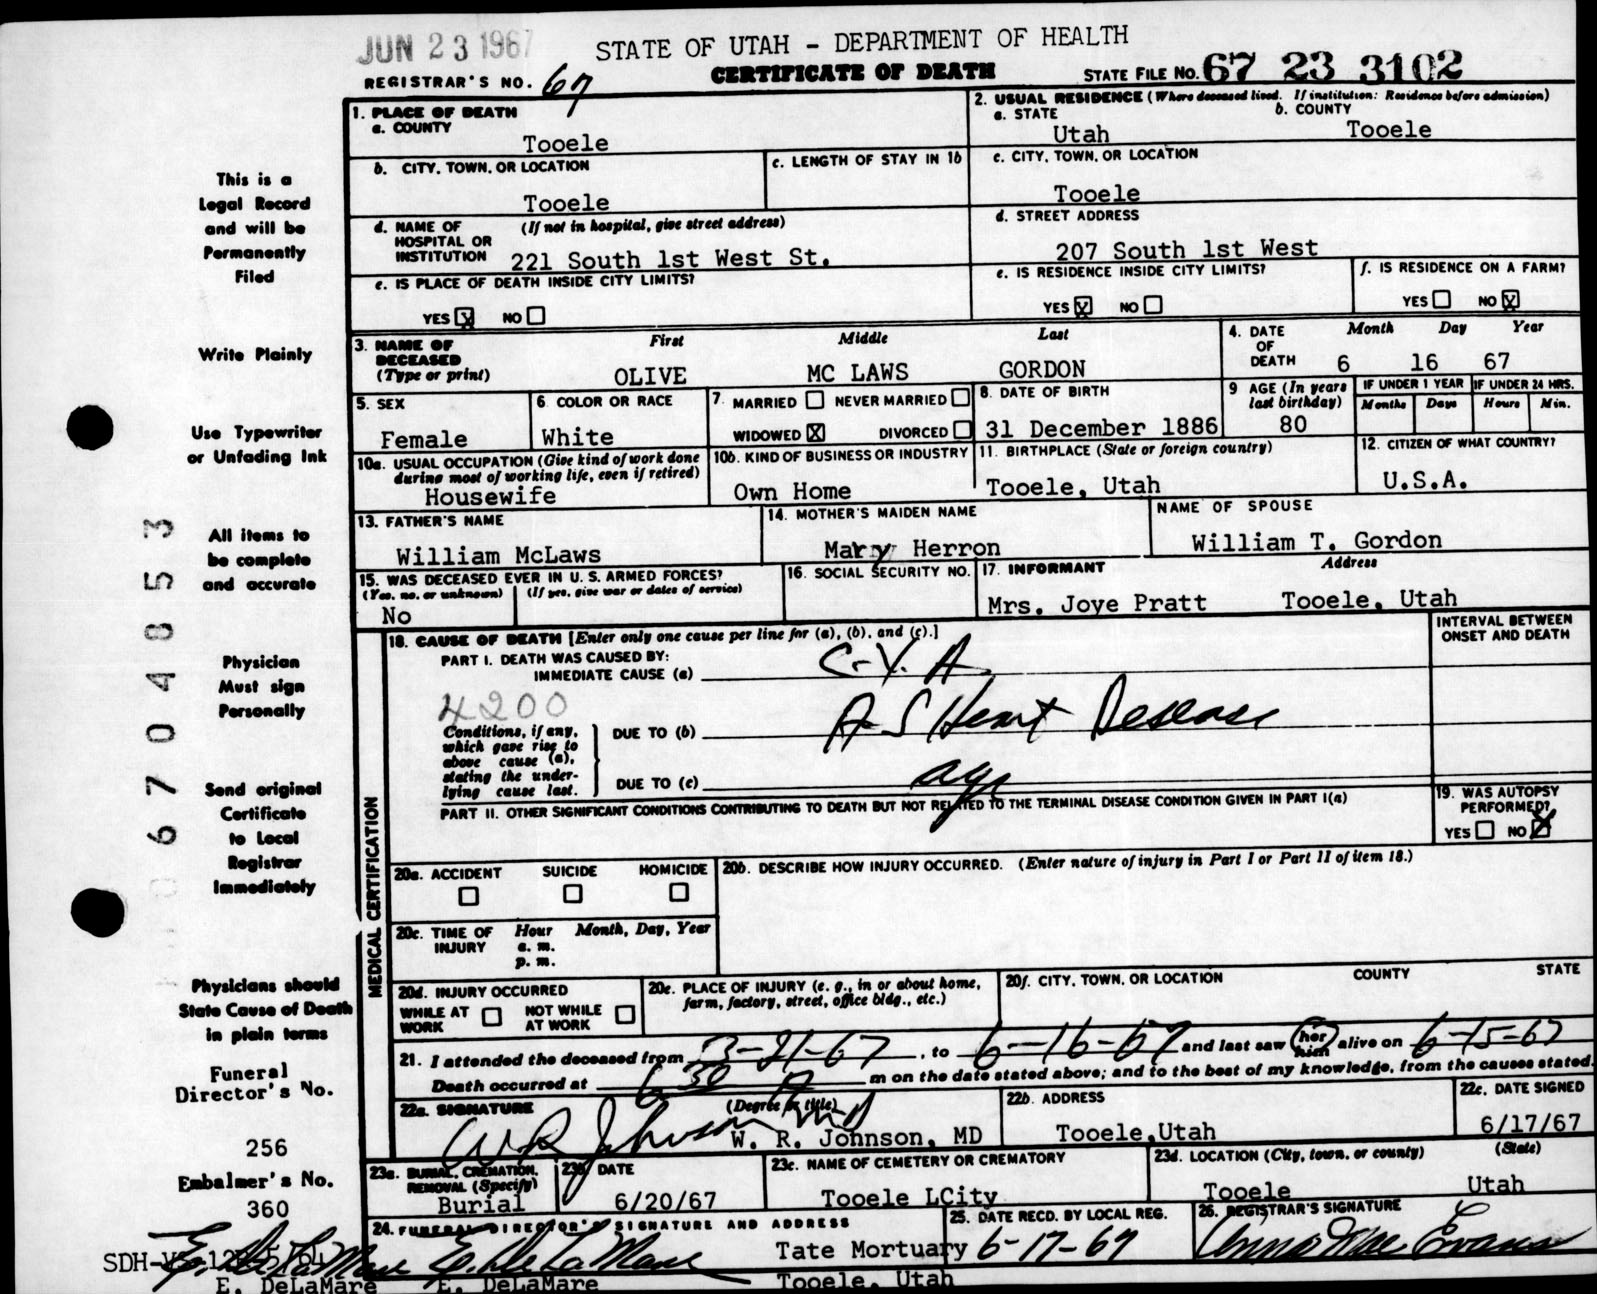 JUN 23 1967
STATE OF UTAH - DEPARTMENT OF HEALTH
CERTIFICATE OF DEATH
REGISTRAR'S NO. 67
STATE FILE NO. 67 23 3102
This is a
Legal Record
and will be
Permanently
Filed
Write Plainly
Use Typewriter
or Unfading Ink
All items to
be complete
and accurate
Physician
Must sign
Personally
Send original
Certificate
to Local
Registrar
Immediately
Physicians should
State Cause of Death
in plain terms
Funeral
Director's No.
256
Embalmer's No.
360
67048853
1. PLACE OF DEATH
a. COUNTY
Tooele
2. USUAL RESIDENCE (Where deceased lived. If institution: Residence before admission)
a. STATE b. COUNTY
Utah Tooele
b. CITY, TOWN, OR LOCATION
Tooele
c. LENGTH OF STAY IN 1b
c. CITY, TOWN, OR LOCATION
Tooele
d. NAME OF (If not in hospital, give street address)
HOSPITAL OR
INSTITUTION 221 South 1st West St.
d. STREET ADDRESS
207 South 1st West
e. IS PLACE OF DEATH INSIDE CITY LIMITS?
YES X NO
e. IS RESIDENCE INSIDE CITY LIMITS?
YES X NO
f. IS RESIDENCE ON A FARM?
YES NO X
3. NAME OF First Middle Last
DECEASED
(Type or print) OLIVE MC LAWS GORDON
4. DATE Month Day Year
OF
DEATH 6 16 67
5. SEX
Female
6. COLOR OR RACE
White
7. MARRIED NEVER MARRIED
WIDOWED X DIVORCED
8. DATE OF BIRTH
31 December 1886
9 AGE (In years
last birthday)
80
IF UNDER 1 YEAR
Months Days
IF UNDER 24 HRS.
Hours Min.
10a. USUAL OCCUPATION (Give kind of work done
during most of working life, even if retired)
Housewife
10b. KIND OF BUSINESS OR INDUSTRY
Own Home
11. BIRTHPLACE (State or foreign country)
Tooele, Utah
12. CITIZEN OF WHAT COUNTRY?
U.S.A.
13. FATHER'S NAME
William McLaws
14. MOTHER'S MAIDEN NAME
Mary Herron
NAME OF SPOUSE
William T. Gordon
15. WAS DECEASED EVER IN U. S. ARMED FORCES?
(Yes, no, or unknown) (If yes, give war or dates of service)
No
16. SOCIAL SECURITY NO.
17. INFORMANT Address
Mrs. Joye Pratt Tooele, Utah
MEDICAL CERTIFICATION
18. CAUSE OF DEATH [Enter only one cause per line for (a), (b), and (c).]
INTERVAL BETWEEN
ONSET AND DEATH
PART I. DEATH WAS CAUSED BY:
IMMEDIATE CAUSE (a) C-V. A
4200
Conditions, if any,
which gave rise to
above cause (a),
stating the under-
lying cause last.
DUE TO (b) A-S Heart Desease
DUE TO (c) age
PART II. OTHER SIGNIFICANT CONDITIONS CONTRIBUTING TO DEATH BUT NOT RELATED TO THE TERMINAL DISEASE CONDITION GIVEN IN PART I(a)
19. WAS AUTOPSY
PERFORMED?
YES NO X
20a. ACCIDENT SUICIDE HOMICIDE
20b. DESCRIBE HOW INJURY OCCURRED. (Enter nature of injury in Part I or Part II of item 18.)
20c. TIME OF Hour Month, Day, Year
INJURY a. m.
p. m.
20d. INJURY OCCURRED
WHILE AT NOT WHILE
WORK AT WORK
20e. PLACE OF INJURY (e. g., in or about home,
farm, factory, street, office bldg., etc.)
20f. CITY, TOWN, OR LOCATION COUNTY STATE
21. I attended the deceased from 3-21-67, to 6-16-67 and last saw her him alive on 6-15-67
Death occurred at 6 30 A m on the date stated above; and to the best of my knowledge, from the causes stated.
22a. SIGNATURE (Degree or title)
WR Johnson MD
W. R. Johnson, MD
22b. ADDRESS
Tooele,Utah
22c. DATE SIGNED
6/17/67
23a. BURIAL, CREMATION,
REMOVAL (Specify)
Burial
23b. DATE
6/20/67
23c. NAME OF CEMETERY OR CREMATORY
Tooele LCity
23d. LOCATION (City, town, or county) (State)
Tooele Utah
24. FUNERAL DIRECTOR'S SIGNATURE AND ADDRESS
E. DeLaMare E. DeLaMare Tate Mortuary
E. DeLaMare E. DeLaMare Tooele, Utah
25. DATE RECD. BY LOCAL REG.
6-17-67
26. REGISTRAR'S SIGNATURE
Anna Mae Evans